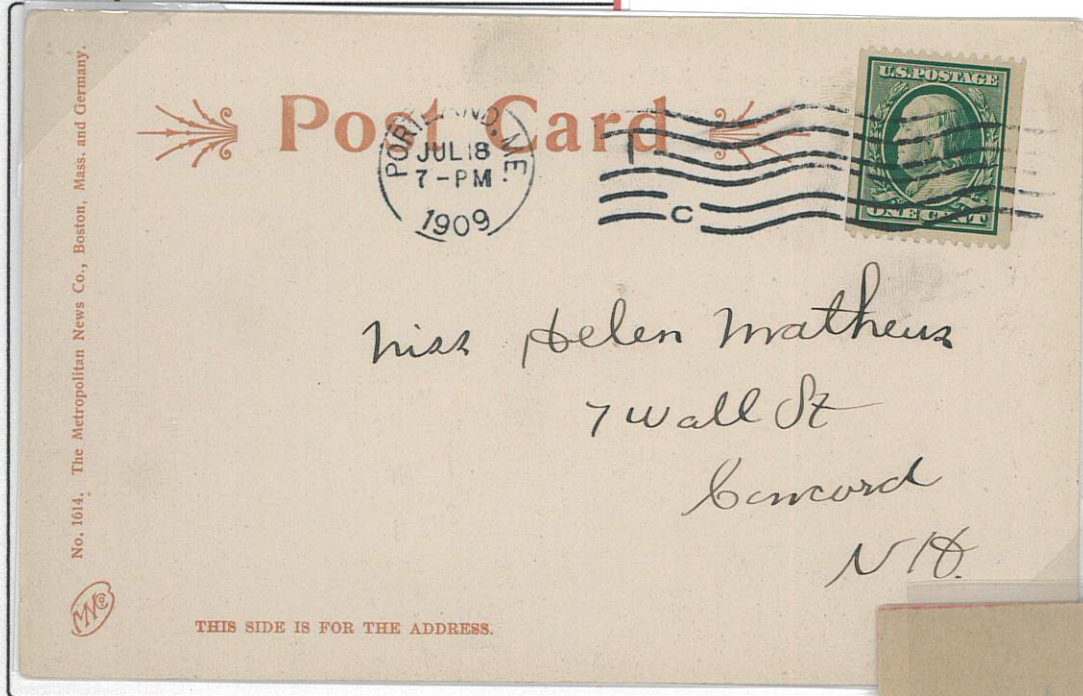 No. 1614. The Metropolitan News Co., Boston, Mass. and Germany.
Post Card
PORTLAND, ME.
JUL 18
7-PM
1909
C
U.S. POSTAGE
ONE CENT
Miss Helen Mathews
7 Wall St
Concord
N H.
MNCo
THIS SIDE IS FOR THE ADDRESS.